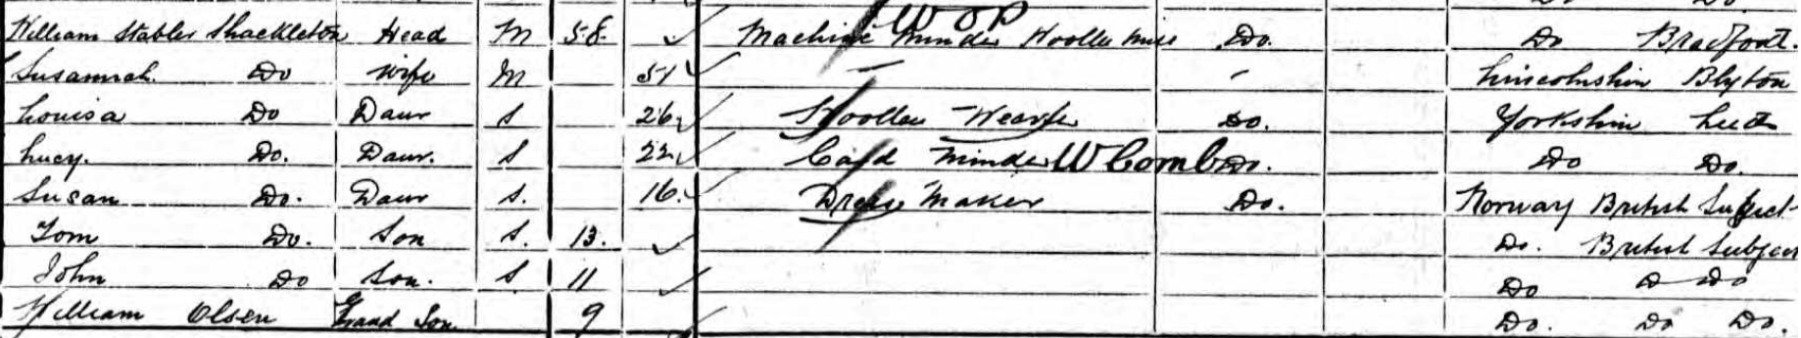 W O P
William Stables Shackleton Head M 58 Machine Minder Woollen Mill Do. Do Bradford.
Susannah Do Wife M 51 Lincolnshire Blyton
Louisa Do Daur S 26 Woollen Weaver Do. Yorkshire Leeds
Lucy. Do. Daur. S 22 Card Minder W Comb Do. Do Do.
Susan Do. Daur S. 16. Dress Maker Do. Norway British Subject
Tom Do. Son S. 13. Do. British Subject
John Do Son. S 11 Do Do Do
William Olsen Grand Son. 9 Do. Do Do.